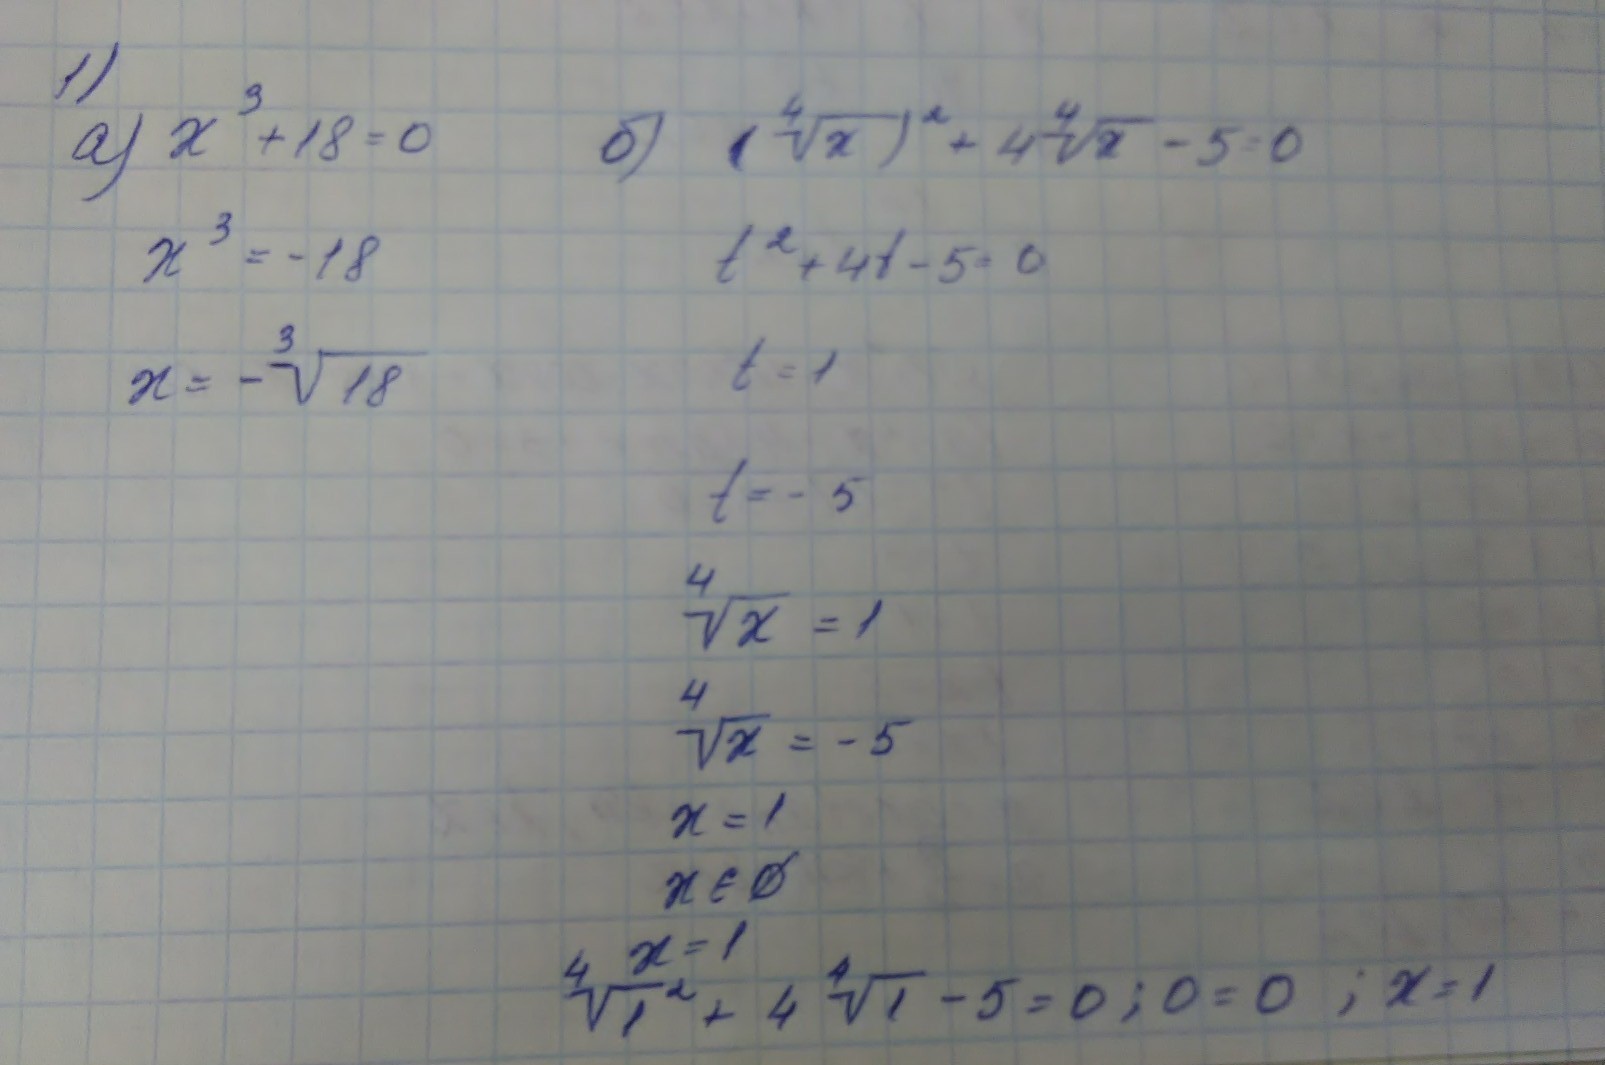 1)
а) x³+18=0
x³=-18
x=-∛18
б) (∜x)²+4∜x-5=0
t²+4t-5=0
t=1
t=-5
∜x=1
∜x=-5
x=1
x∈∅
x=1
∜1²+4∜1-5=0; 0=0 ; x=1